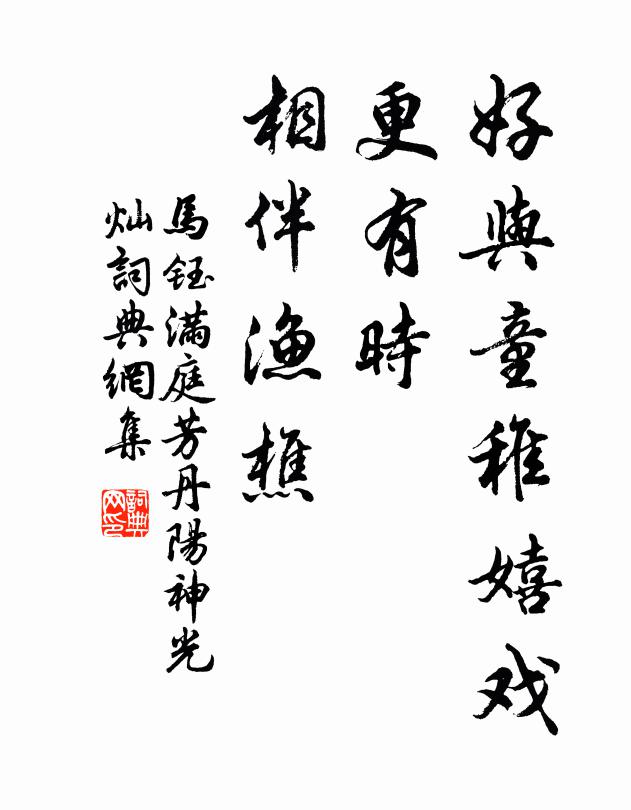 好與童稚嬉戏
更有時
相伴渔樵
馬鈺滿庭芳丹陽神光
灿詞典網集
詞典网印